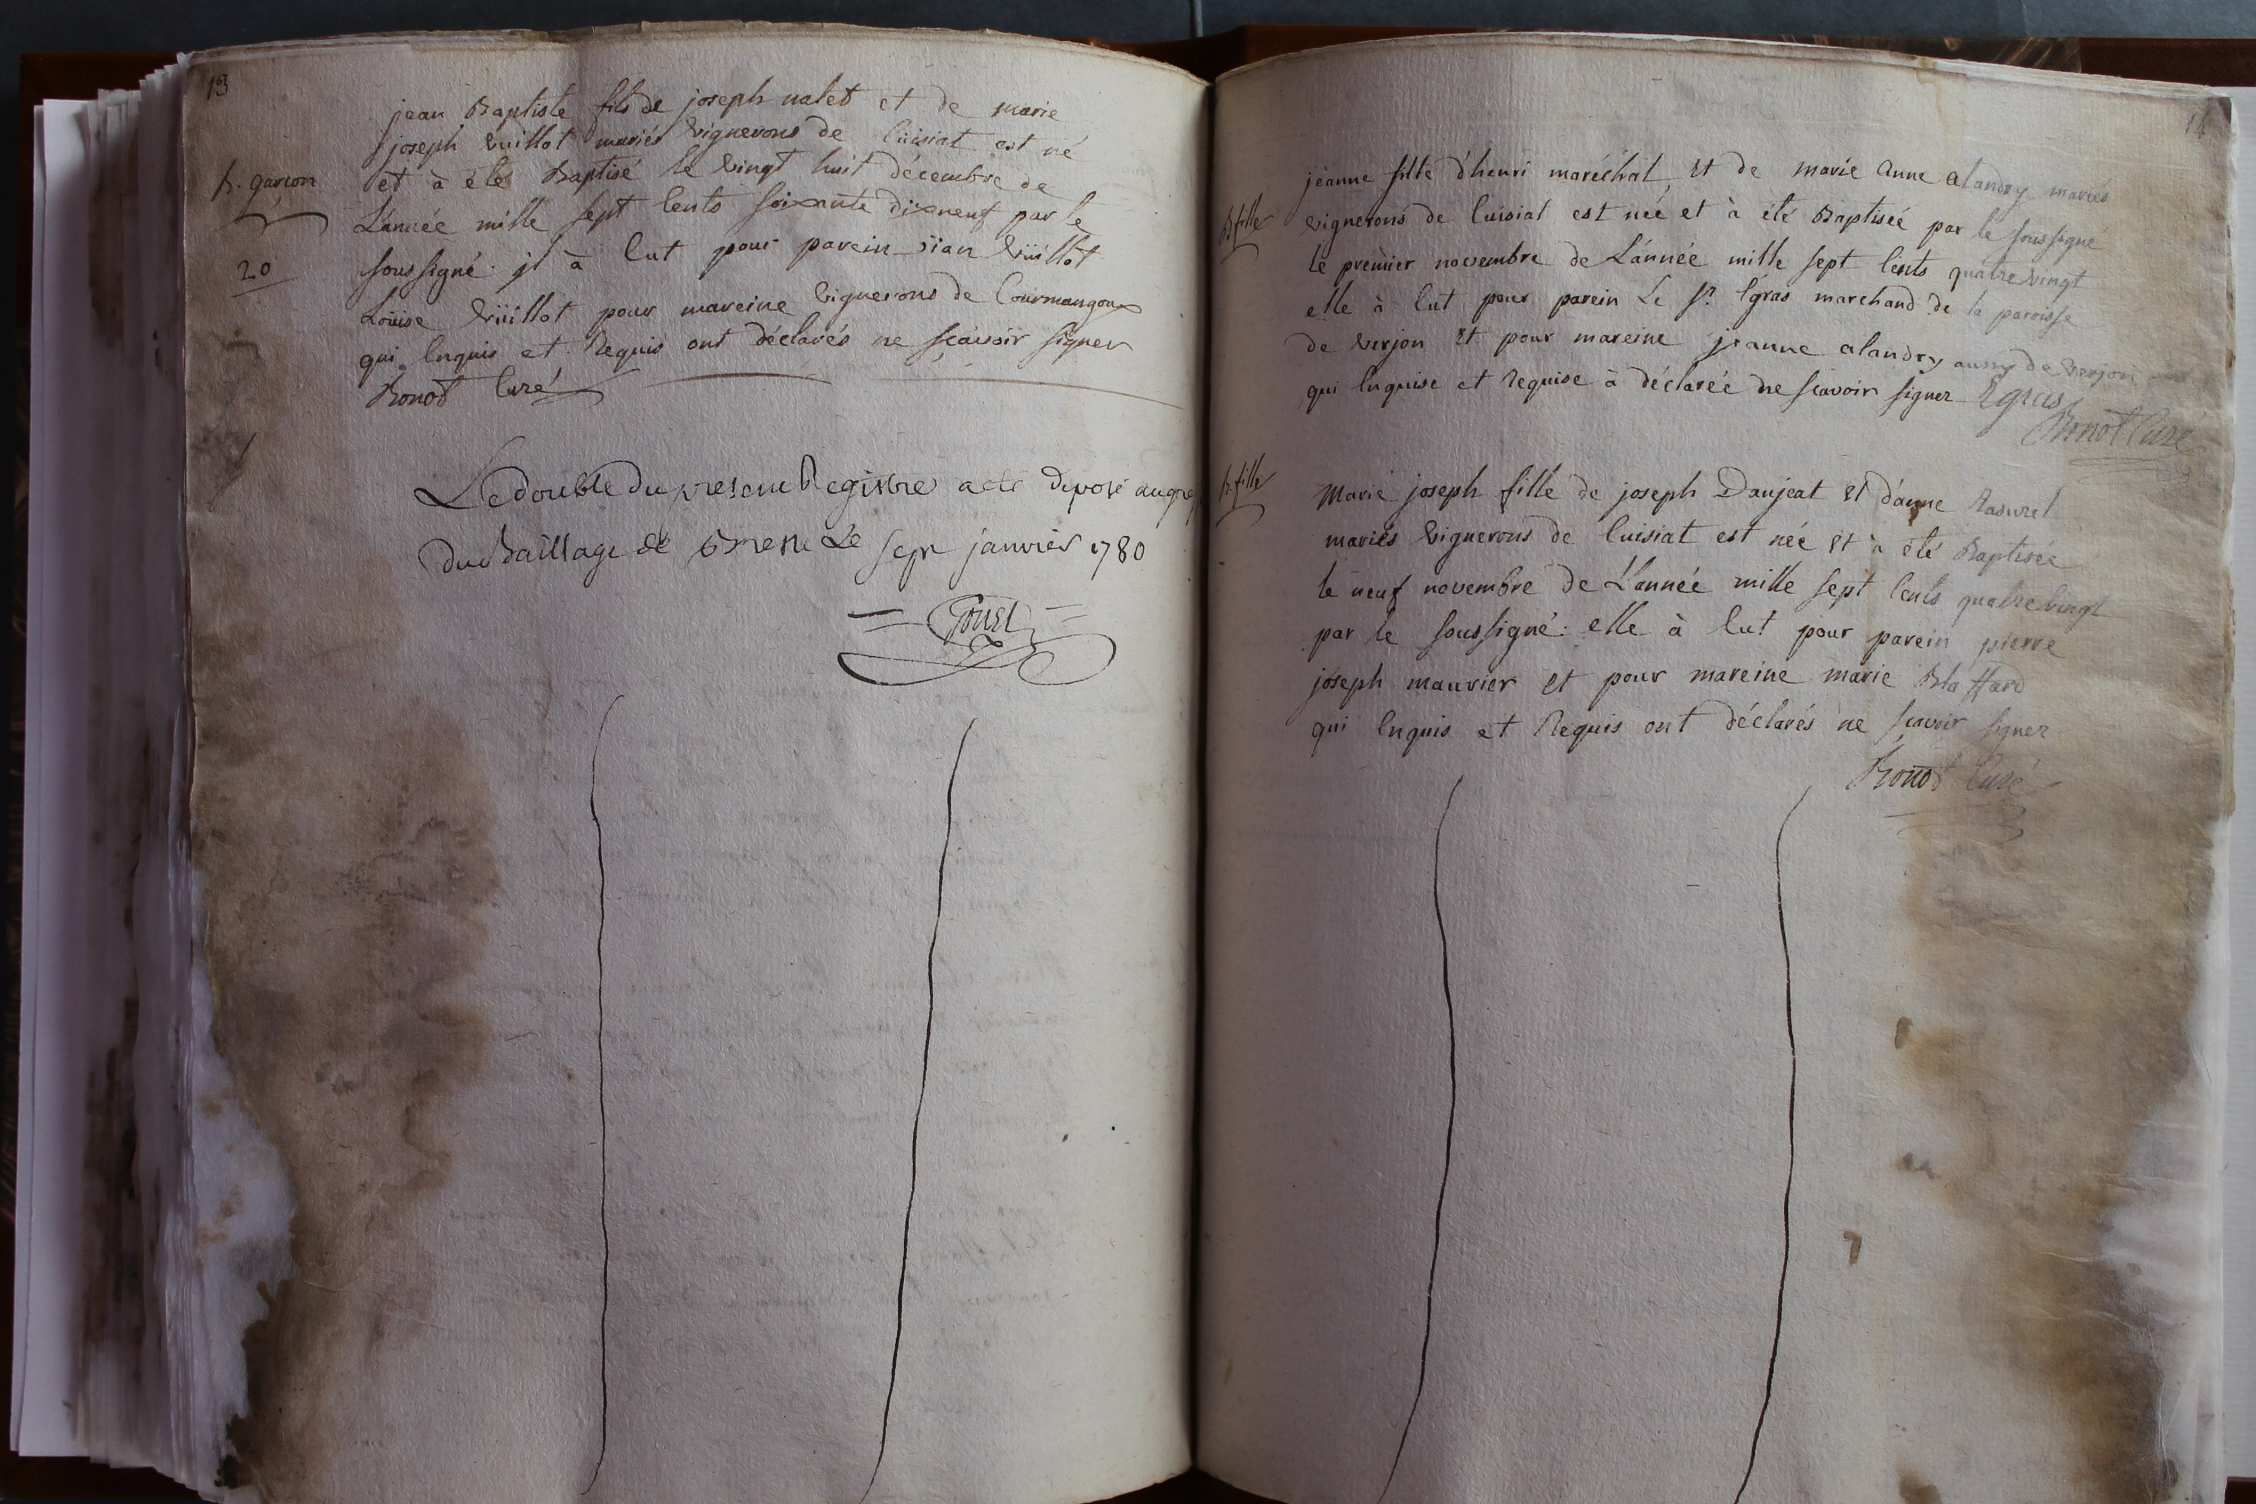 13
jean Baptiste fils de joseph nalet et de marie
joseph vuillot mariés vignerons de Cuisiat est né
b. garçon
et à été Baptisé le vingt huit décembre de
L'année mille sept Cents soixante dixneuf par le
20
soussigné. jl à Eut pour parein jian vüillot
Loüise vüillot pour mareine vignerons de Courmangoux
qui Enquis et Requis ont déclarés ne sçavoir signer
Ronod Curé
Le double du present Registre a ete deposé au gref
du Baillage de Bresse Le sept janvier 1780
14
jeanne fille d'henri maréchal et de marie anne alandry mariés
B fille
vignerons de Cuisiat est née et à été Baptisée par le soussigné
le premier novembre de L'année mille sept Cents quatre vingt
elle à Eut pour parein Le Sr. Egras marchand de la paroisse
de verjon Et pour mareine jeanne alandry aussy de verjon
qui Enquise et Requise à déclarée ne scavoir signer Egras
Ronod Curé
b. fille
Marie joseph fille de joseph Daujeat Et d'anne Rasurel
mariés vignerons de Cuisiat est née Et à été Baptisée
le neuf novembre de L'année mille sept Cents quatre vingt
par le soussigné: elle à Eut pour parein pierre
joseph maurier Et pour mareine marie Blaffard
qui Enquis et Requis ont déclarés ne scavoir signer
Ronod Curé